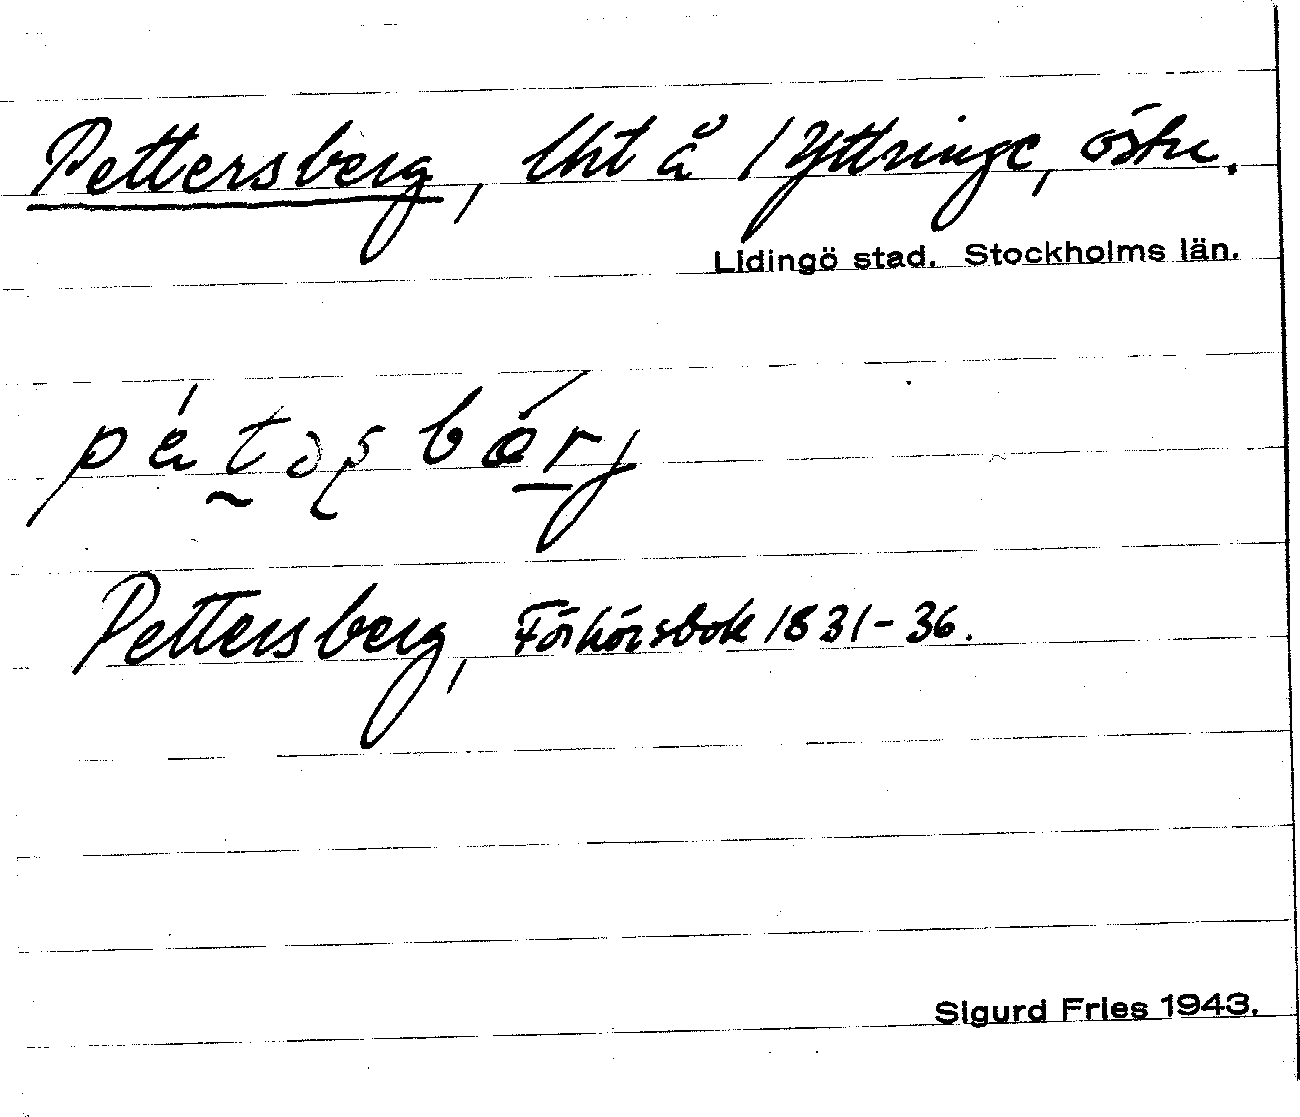 Pettersberg, lht å / Yttringe, östre.
Lidingö stad. Stockholms län.
pètəʂbärj
Pettersberg, Förhörsbok 1831-36.
Sigurd Fries 1943.